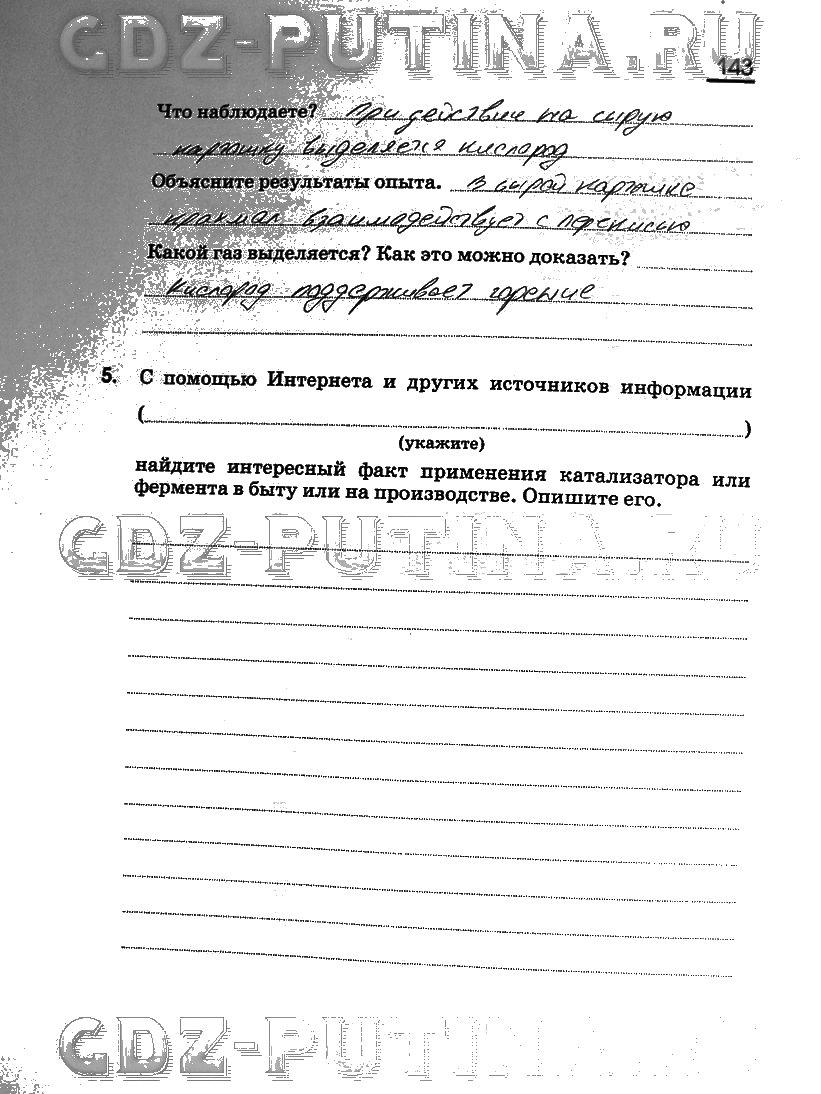 GDZ-PUTINA.RU
143
Что наблюдаете? При действии на сырую
картошку выделяется кислород
Объясните результаты опыта. В сырой картошке
крахмал взаимодействует с перекисью
Какой газ выделяется? Как это можно доказать?
Кислород поддерживает горение
5. С помощью Интернета и других источников информации
( )
(укажите)
найдите интересный факт применения катализатора или
фермента в быту или на производстве. Опишите его.
GDZ-PUTINA.RU
GDZ-PUTINA.RU